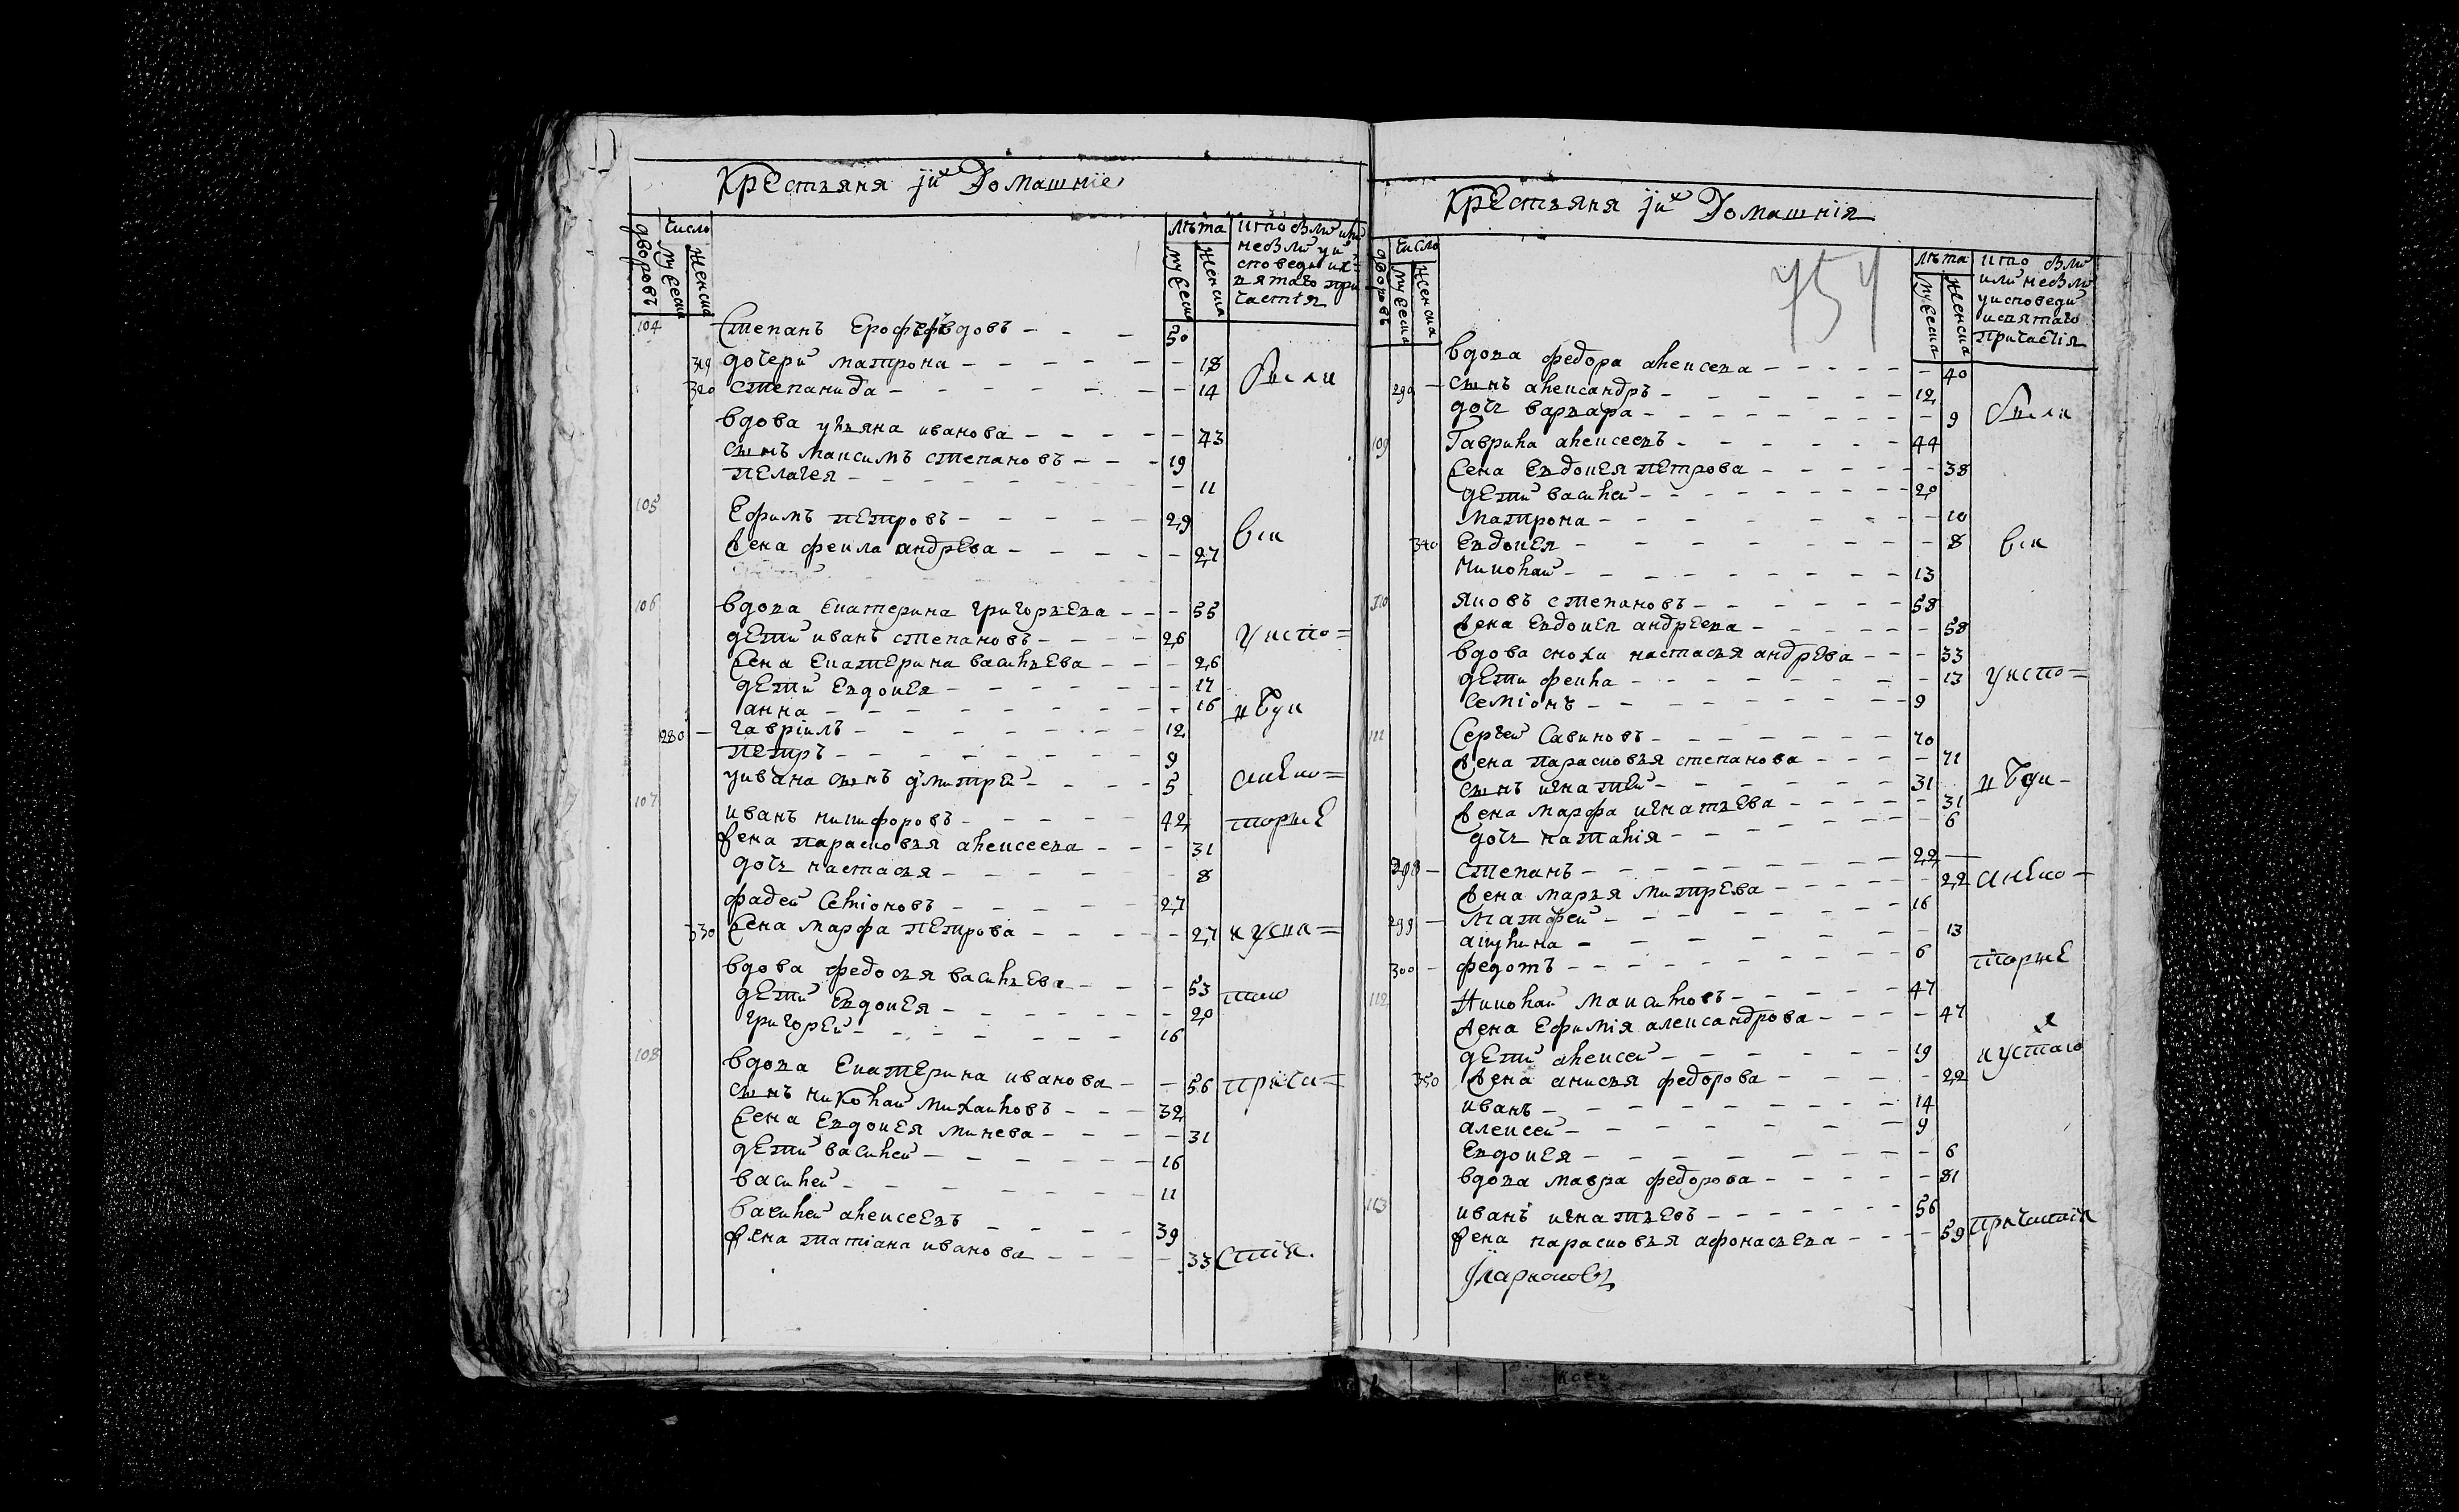 Крестьяня їихъ Домашніе
число
дворовъ
мужеска
женска
лѣта
мужеска
женска
кто были или
небыли уи
споведи их
вятаго при
частія
104 Степанъ Ерофѣ - - - 50
319 дочери матрона - - - 18 были
320 степанида - - - 14
вдова ульяна иванова - - - 43
сынъ максимъ степановъ - - - 19
пелагея - - - 11
105 Ефимъ петровъ - - - 29 вси
жена фекла андрева - - - 27
106 вдова екатерина григорьева - - - 55
дети иванъ степановъ - - - 26 уиспо=
жена екатерина васильева - - - 26
дети евдокея - - - 17
анна - - - 16
280 - гавріилъ - - - 12
петръ - - - 9
уивана сынъ дмитрей - - - 5
107 иванъ никифоровъ - - - 42 торже
жена парасковья алексеева - - - 31
дочь настасья - - - 8
фадей семіоновъ - - - 27
330 жена марфа петрова - - - 27
вдова федосья васильева - - - 53
дети евдокея - - - 20
григорей - - - 16
108 вдова екатерина иванова - - 56 прича=
сынъ николай михайловъ - - - 32
жена евдокея минева - - - 31
дети василей - - - 16
василей - - - 11
василей алексеевъ - - - 39
жена татіана иванова - - - 33 стія.
Крестьяня їихъ Домашнія
754
число
дворовъ
мужеска
женска
лѣта
мужеска
женска
кто были
или небыли
уисповеди
исвятаго
причастія
вдова федора алексева - - - 40
290 - сынъ александръ - - - 12
дочь варвара - - - 9 были
109 Гаврила алексеевъ - - - 44
жена евдокея петрова - - - 38
дети василей - - - 20
матрона - - - 10
340 евдокея - - - 8 вси
николай - - - 13
110 яковъ степановъ - - - 58
жена евдокея андреева - - - 58
вдова сноха настасья андрева - - - 33
дети фекла - - - 13 уиспо=
семіонъ - - - 9
111 Сергей Савиновъ - - - 70
жена парасковья степанова - - - 71
сынъ игнатей - - - 31
жена марфа игнатьева - - - 31
дочь наталія - - - 6
298 - степанъ - - - 22
жена марья митрева - - - 22
299 - матфей - - - 16
акулина - - - 13
300 - федотъ - - - 6 торже
112 Николай максимовъ - - - 47
жена ефимія александрова - - - 47
дети алексей - - - 19
350 жена анисья федорова - - - 22
иванъ - - - 14
алексей - - - 9
евдокея - - - 6
вдова мавра федорова - - - 81
113 иванъ игнатьевъ - - - 56
жена парасковья афонасьева - - - 59 причастія